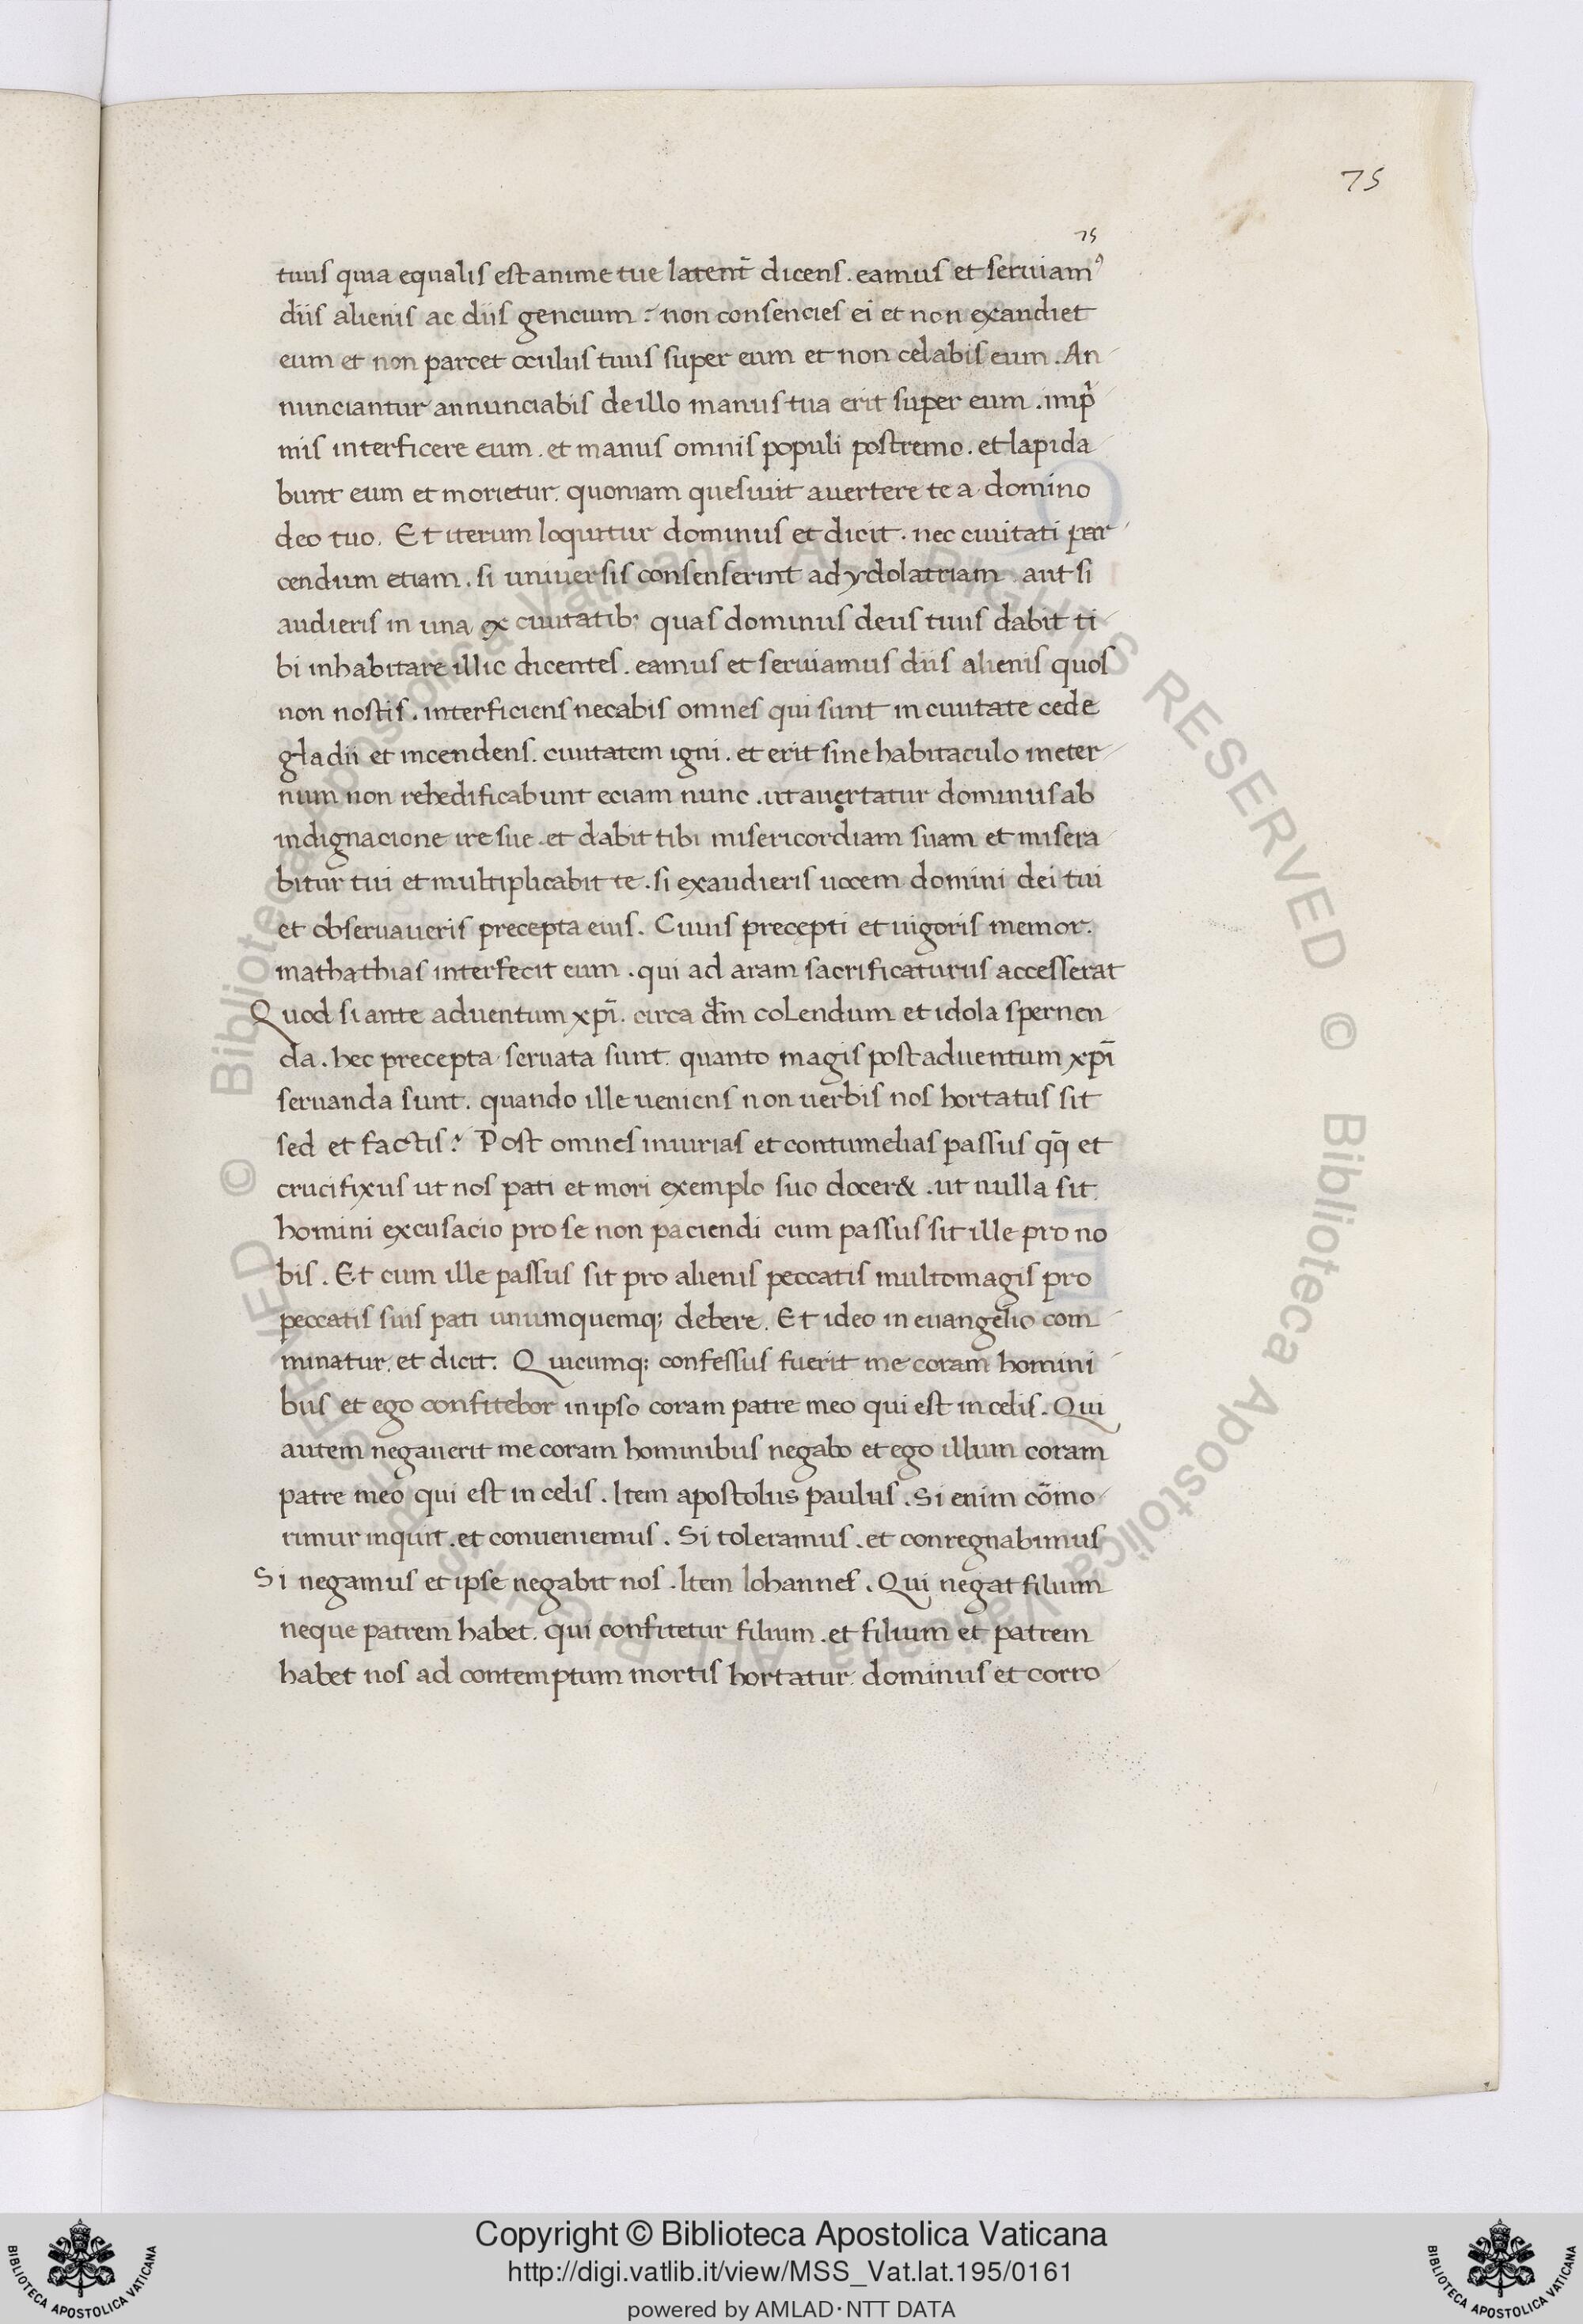 75
75
tuus quia equalis est anime tue latent̄ dicens . eamus et seruiamꝰ
diis alienis ac diis gencium : non consencies ei et non exaudiet
eum et non parcet oculus tuus super eum et non celabis eum . An
nunciantur annunciabis de illo manus tua erit super eum . imp̄
mis interficere eum . et manus omnis populi postremo . et lapida
bunt eum et morietur . quoniam quesiuit auertere te a domino
deo tuo . Et iterum loquitur dominus et dicit . nec ciuitati par
cendum etiam . si uniuersis consenserint ad ydolatriam . aut si
audieris in una ex ciuitatib; quas dominus deus tuus dabit ti
bi inhabitare illic dicentes . eamus et seruiamus diis alienis quos
non nostis . interficiens necabis omnes qui sunt in ciuitate cede
gladii et incendens . ciuitatem igni . et erit sine habitaculo in eter
num non rehedificabunt eciam nunc . ut auertatur dominus ab
indignacione ire sue . et dabit tibi misericordiam suam et misera
bitur tui et multiplicabit te . si exaudieris uocem domini dei tui
et obseruaueris precepta eius . Cuius precepti et uigoris memor .
mathathias interfecit eum . qui ad aram sacrificaturus accesserat
Quod si ante aduentum xp̄i . circa dm̄ colendum et idola spernen
da . hec precepta seruata sunt . quanto magis post aduentum xp̄i
seruanda sunt . quando ille ueniens non uerbis nos hortatus sit
sed et factis ? Post omnes iniurias et contumelias passus qq̄ et
crucifixus ut nos pati et mori exemplo suo docer& . ut nulla sit
homini excusacio pro se non paciendi cum passus sit ille pro no
bis . Et cum ille passus sit pro alienis peccatis multomagis pro
peccatis suis pati unumquemq; debere . Et ideo in euangelio com
minatur . et dicit . Quicumq; confessus fuerit me coram homini
bus et ego confitebor in ipso coram patre meo qui est in celis . Qui
autem negauerit me coram hominibus negabo et ego illum coram
patre meo qui est in celis . Item apostolus paulus . Si enim cōmo
rimur inquit . et conueniemus . Si toleramus . et conregnabimus
Si negamus et ipse negabit nos . Item Iohannes . Qui negat filium
neque patrem habet . qui confitetur filium . et filium et patrem
habet nos ad contemptum mortis hortatur . dominus et corro
© Biblioteca Apostolica Vaticana ALL RIGHTS RESERVED © Biblioteca Apostolica Vaticana ALL RIGHTS RESERVED
Copyright © Biblioteca Apostolica Vaticana
http://digi.vatlib.it/view/MSS_Vat.lat.195/0161
powered by AMLAD·NTT DATA
BIBLIOTECA APOSTOLICA VATICANA
BIBLIOTECA APOSTOLICA VATICANA